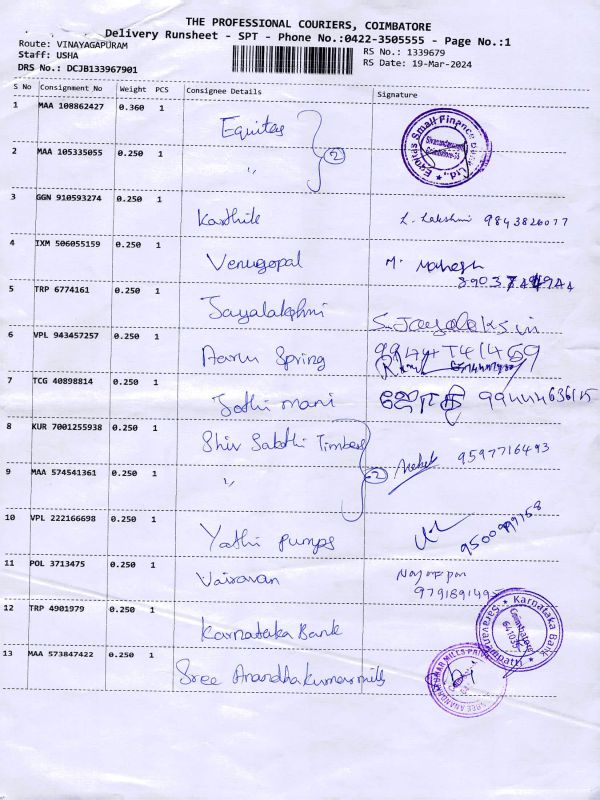 THE PROFESSIONAL COURIERS, COIMBATORE
Delivery Runsheet - SPT - Phone No.:0422-3505555 - Page No.:1
Route: VINAYAGAPURAM
RS No.: 1339679
Staff: USHA
RS Date: 19-Mar-2024
DRS No.: DCJB133967901
S No Consignment No Weight PCS Consignee Details Signature
1 MAA 108862427 0.360 1 Equitas
2 MAA 105335055 0.250 1 " 2
3 GGN 910593274 0.250 1 Karthik L. Lakshmi 9843826077
4 IXM 506055159 0.250 1 Venugopal M. Mahesh
5 TRP 6774161 0.250 1 Jayalakshmi
6 VPL 943457257 0.250 1 Aaru Spring
7 TCG 40898814 0.250 1 Jothi mani ஜோதி
8 KUR 7001255938 0.250 1 Shiv Sakthi Timbers 9597716493
9 MAA 574541361 0.250 1 " 2
10 VPL 222166698 0.250 1 Yathi pumps
11 POL 3713475 0.250 1 Vairavan
12 TRP 4901979 0.250 1 Karnataka Bank
Karnataka Bank
Coimbatore
641035
Saravanampatti
13 MAA 573847422 0.250 1 Sree Anandhakumar mills